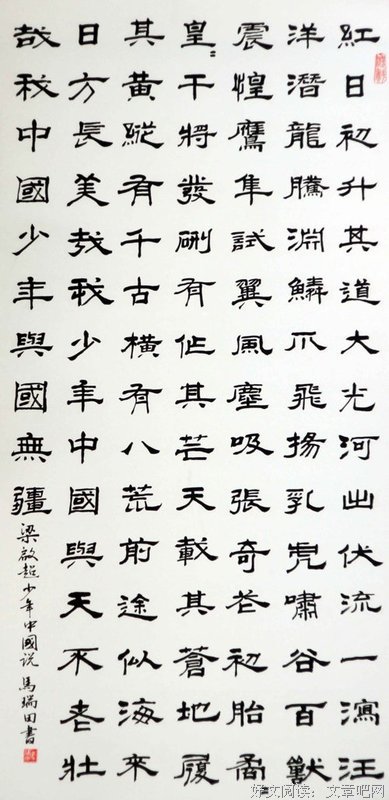 紅日初升其道大光河出伏流一瀉汪
洋潛龍騰淵鱗爪飛揚乳虎嘯谷百獸
震惶鷹隼試翼風塵吸張奇花初胎矞
皇〻干將發硎有作其芒天載其蒼地履
其黃縱有千古橫有八荒前途似海來
日方長美哉我少年中國與天不老壯
哉我中國少年與國無疆
梁啟超少年中國説 馬瑞田書
好文阅读：文章吧网